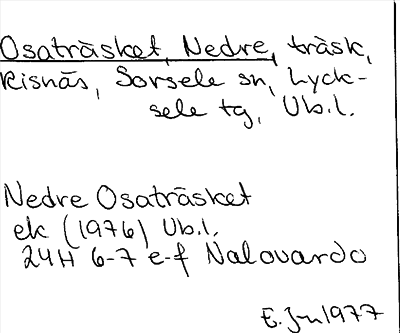 Osaträsket, Nedre, träsk,
Risnäs, Sorsele sn, Lyck-
sele tg, Vb.l.
Nedre Osaträsket
ek (1976) Vb.l.
24H 6-7 e-f Nalovardo
E. 1977